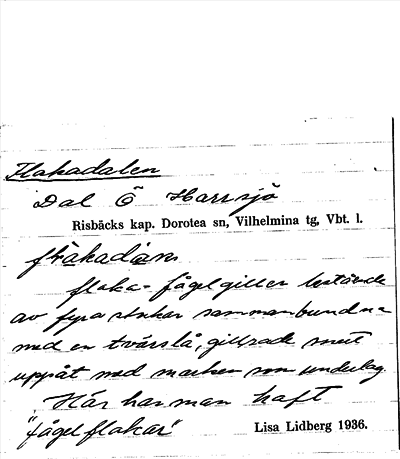 Flakadalen
Dal Ö Harrsjö
Risbäcks kap. Dorotea sn, Vilhelmina tg, Vbt. l.
flaka = fågelgiller bestående
av fyra stokar sammanbundna
med en tvärslå, gillrade snett
uppåt med marken som underlag.
Här har man haft
"fågelflakar"
Lisa Lidberg 1936.